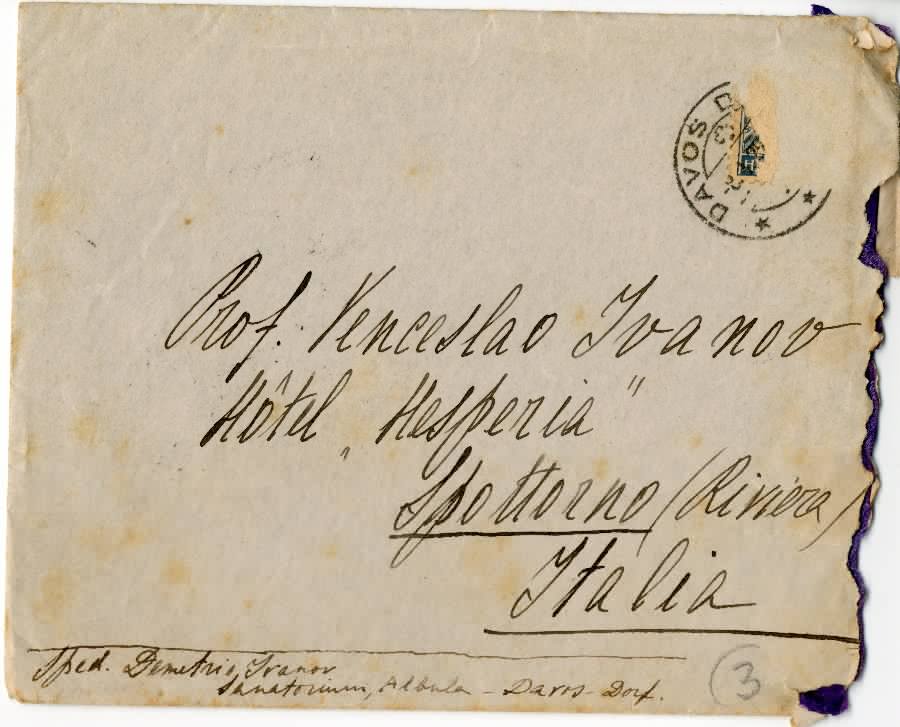 DAVOS D
H
Prof. Venceslao Ivanov
Hôtel „Hesperia”
Spottorno (Riviera)
Italia
Sped. Demetrio Ivanov
Sanatorium, Albula - Davos-Dorf.
3